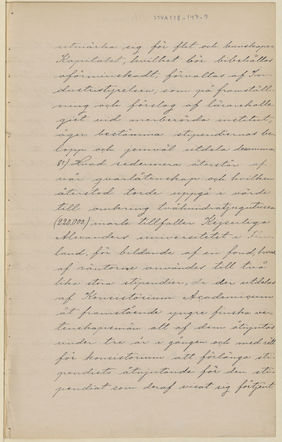 utmärka sig för flit och kunskaper.
Kapitalet, hvilket bör bibehållas
oförminskadt, förvaltas af In-
dustristyrelsen, som på framställ-
ning och förslag af lärarekolle-
giet vid menberörda institut,
äger bestämma stipendiernas be-
lopp och jemväl utdela desamma
8) Hvad sedermera återstår af
vår qvarlåtenskap och hvilken
återstod torde uppgå i värde
till omkring tvåhundratjugutusen
(220,000) mark tillfaller Kejserliga
Alexanders universitetet i Fin-
land, för bildande af en fond, hvar-
af räntorne användes till två
lika stora stipendier, de der utdelas
af Konsistorium Academicum
åt framstående yngre finska ve-
tenskapsmän att af dem åtnjutas
under tre år i gången och med rätt
för konsistorium att förlänga sti-
pendiets åtnjutande för den sti-
pendiat som deraf visat sig förtjent